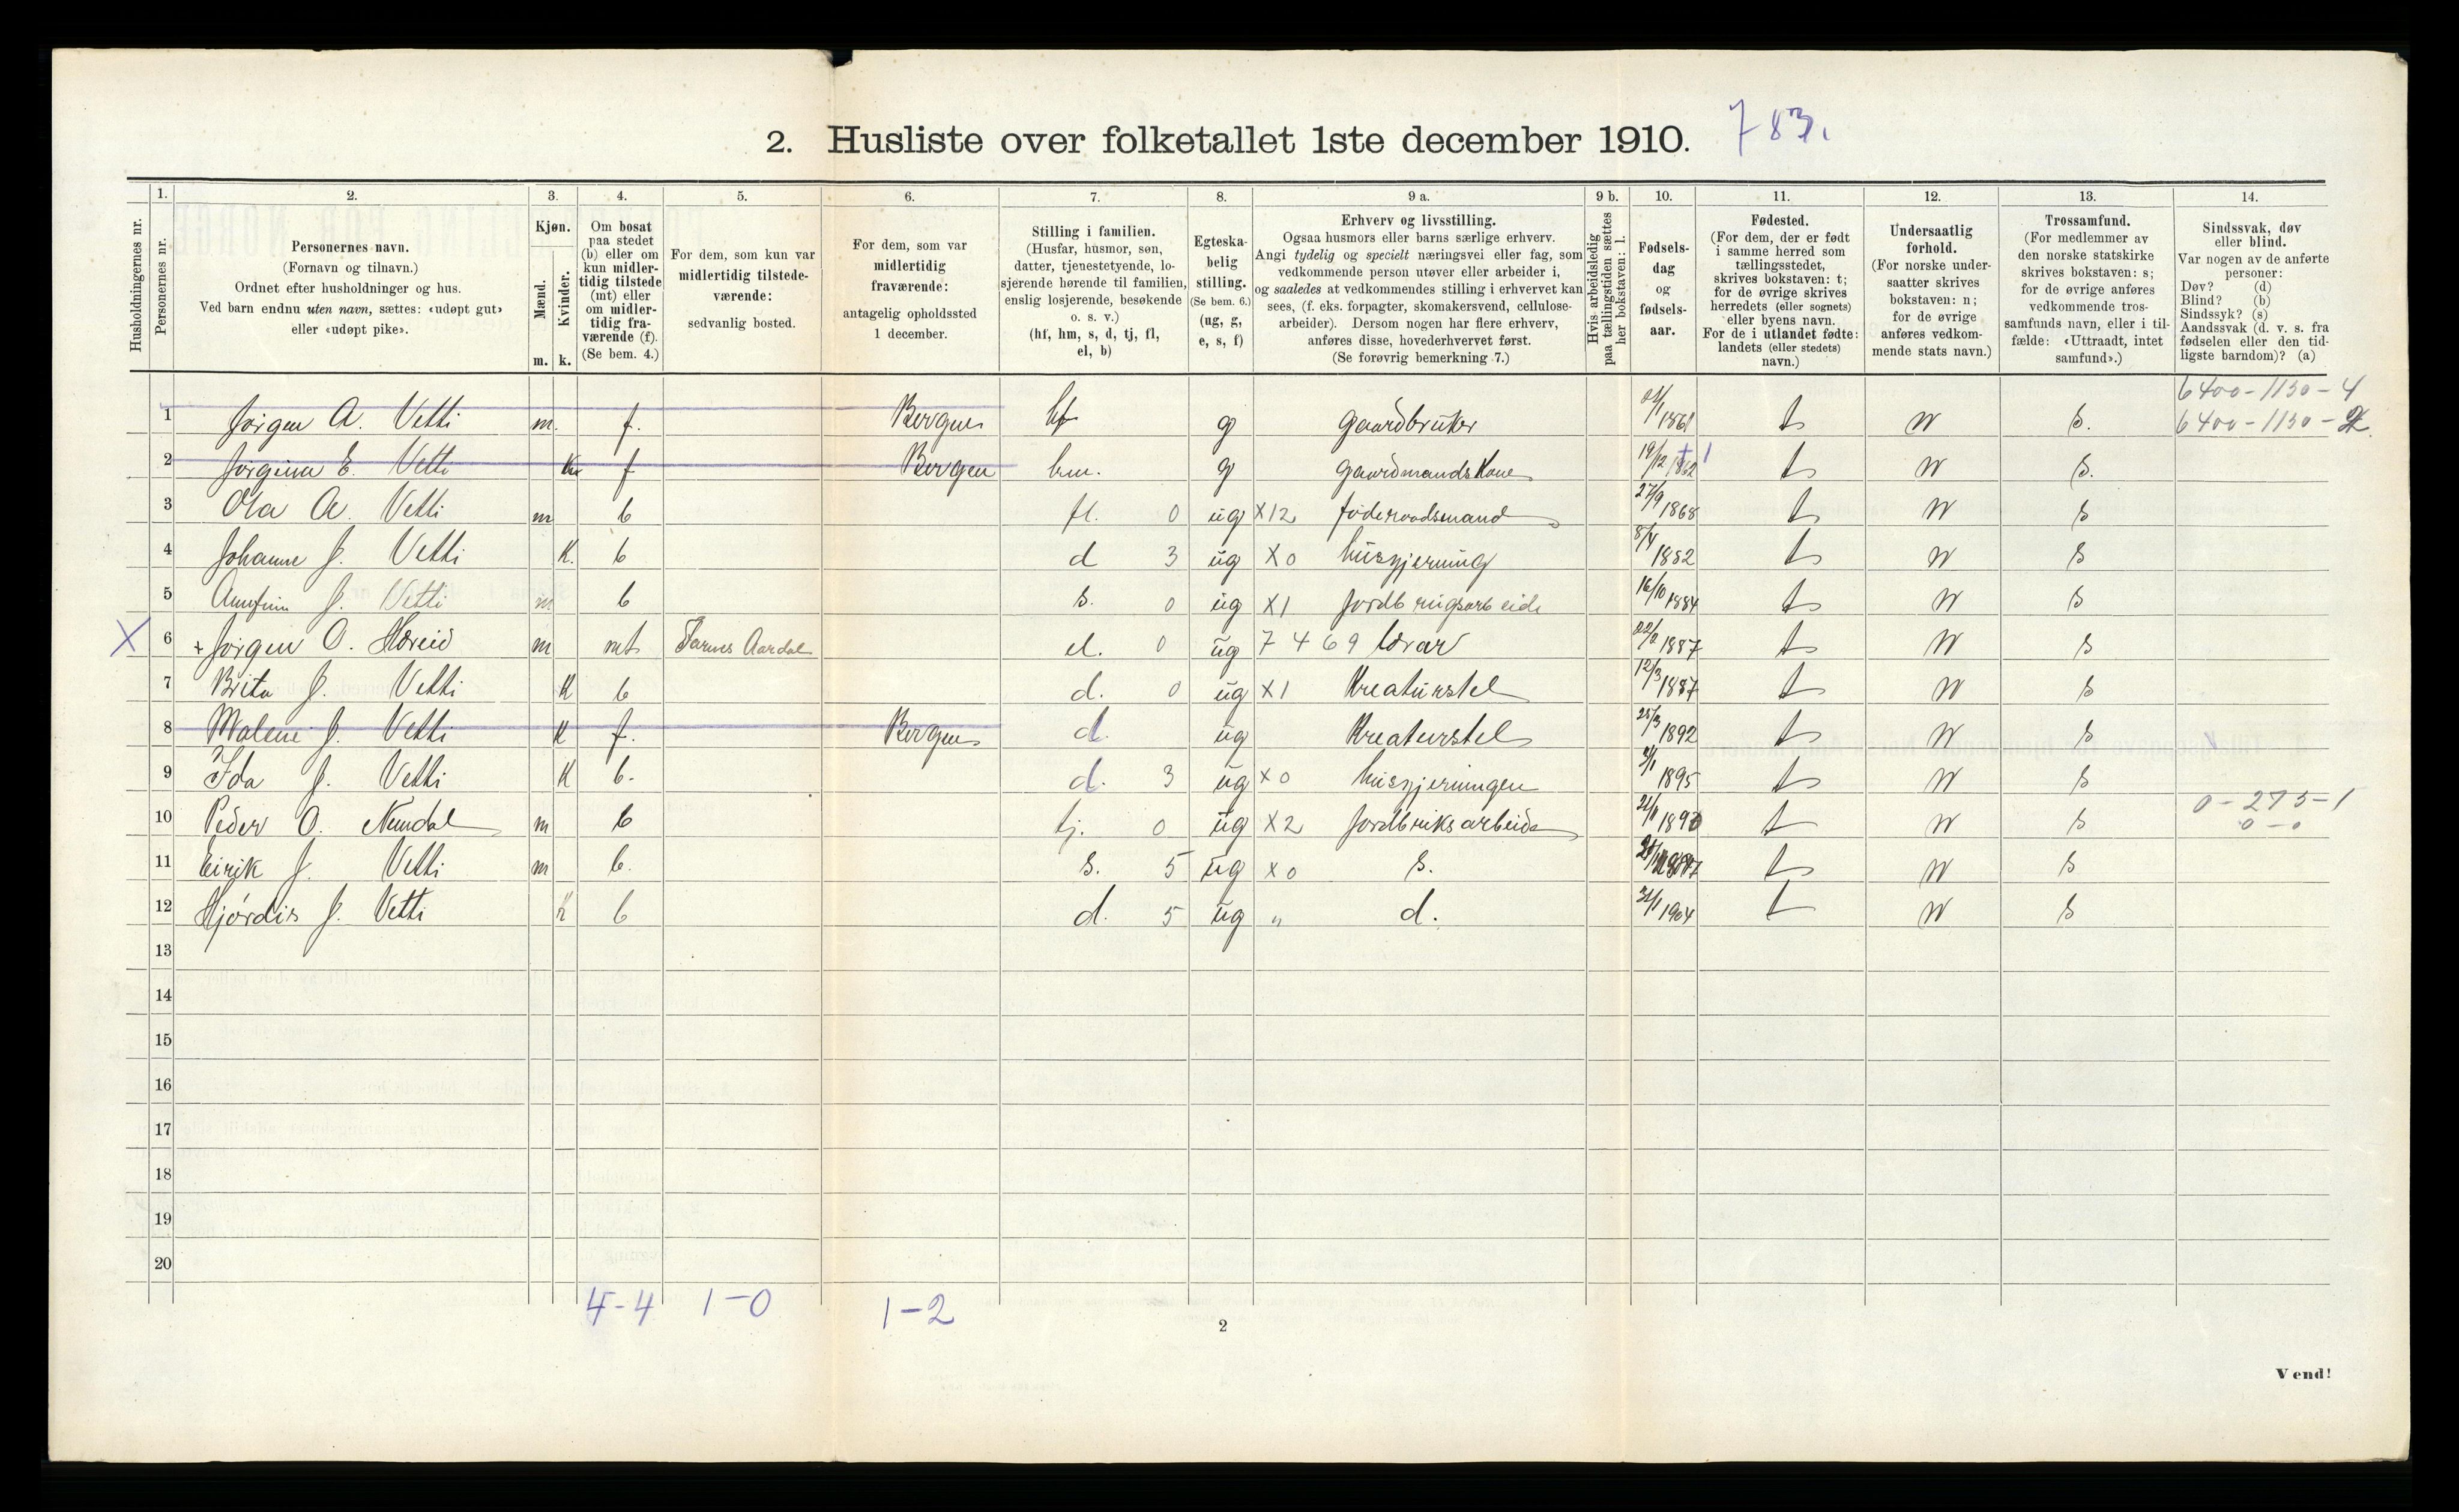 2. Husliste over folketallet 1ste december 1910. 783.
1. 2. 3. 4. 5. 6. 7. 8. 9 a. 9 b. 10. 11. 12. 13. 14.
Husholdningernes nr.
Personernes nr.
Personernes navn.
(Fornavn og tilnavn.)
Ordnet efter husholdninger og hus.
Ved barn endnu uten navn, sættes: «udøpt gut»
eller «udøpt pike».
Kjøn.
Mænd.
Kvinder.
m. k.
Om bosat
paa stedet
(b) eller om
kun midler-
tidig tilstede
(mt) eller
om midler-
tidig fra-
værende (f).
(Se bem. 4.)
For dem, som kun var
midlertidig tilstede-
værende:
sedvanlig bosted.
For dem, som var
midlertidig
fraværende:
antagelig opholdssted
1 december.
Stilling i familien.
(Husfar, husmor, søn,
datter, tjenestetyende, lo-
sjerende hørende til familien,
enslig losjerende, besøkende
o. s. v.)
(hf, hm, s, d, tj, fl,
el, b)
Egteska-
belig
stilling.
(Se bem. 6.)
(ug, g,
e, s, f)
Erhverv og livsstilling.
Ogsaa husmors eller barns særlige erhverv.
Angi tydelig og specielt næringsvei eller fag, som
vedkommende person utøver eller arbeider i,
og saaledes at vedkommendes stilling i erhvervet kan
sees, (f. eks. forpagter, skomakersvend, cellulose-
arbeider). Dersom nogen har flere erhverv,
anføres disse, hovederhvervet først.
(Se forøvrig bemerkning 7.)
Hvis arbeidsledig
paa tællingstiden sættes
her bokstaven: l.
Fødsels-
dag
og
fødsels-
aar.
Fødested.
(For dem, der er født
i samme herred som
tællingsstedet,
skrives bokstaven: t;
for de øvrige skrives
herredets (eller sognets)
eller byens navn.
For de i utlandet fødte:
landets (eller stedets)
navn.)
Undersaatlig
forhold.
(For norske under-
saatter skrives
bokstaven: n;
for de øvrige
anføres vedkom-
mende stats navn.)
Trossamfund.
(For medlemmer av
den norske statskirke
skrives bokstaven: s;
for de øvrige anføres
vedkommende tros-
samfunds navn, eller i til-
fælde: «Uttraadt, intet
samfund».)
Sindssvak, døv
eller blind.
Var nogen av de anførte
personer:
Døv? (d)
Blind? (b)
Sindssyk? (s)
Aandssvak (d. v. s. fra
fødselen eller den tid-
ligste barndom)? (a)
6400-1130-4
1 Jørgen A. Vetti m. f. Bergen hf g gaardbruker 1861 t n s. 6400-1130-
2 Jørgina E. Vetti k f Bergen hm. g gaardmandskone 19/12 1862 t n s.
3 Ola A. Vetti m b fl. 0 ug X12 føderaadsmand 27/9 1868 t n s
4 Johanne J. Vetti k. b d 3 ug X0 husgjerning 8/4 1882 t n s
5 Arnfinn J. Vetti m b s. 0 ug X1 jordbrugsarbeide 16/10 1884 t n s
X 6 + Jørgen O. Hæreid m mt Farnes Aardal el. 0 ug 7469 lærar 22/2 1887 t n s
7 Brita J. Vetti k b d. 0 ug X1 Kreaturstel 12/3 1887 t n s
8 Malene J. Vetti k f. Bergen d. ug Kreaturstel 25/3 1892 t n s
9 Ida J. Vetti k b. d. 3 ug X0 husgjerningen 3/1 1895 t n s
0-275-1
10 Peder O. Nundal m b tj. 0 ug X2 jordbruksarbeide t n s 0-0
11 Eirik J. Vetti m b. s. 5 ug X0 s. t n s
12 Hjørdis J. Vetti k b d. 5 ug " d. 31/1 1904 t n s
13
14
15
16
17
18
19
20
4-4 1-0 1-2
2
Vend!